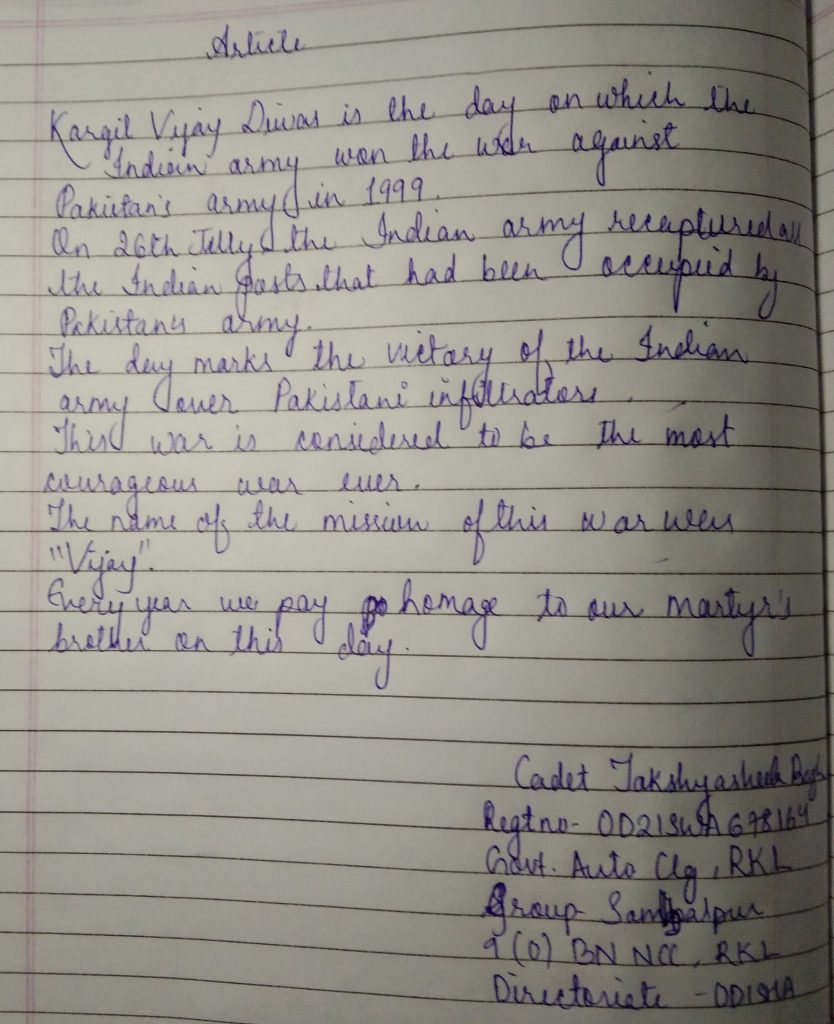 Article
Kargil Vijay Diwas is the day on which the
Indian army won the war against
Pakistan's army in 1999.
On 26th Jully, the Indian army recaptured all
the Indian posts that had been occupied by
Pakistan's army.
The day marks the victory of the Indian
army over Pakistani infiltrators.
This war is considered to be the most
courageous war ever.
The name of the mission of this war was
"Vijay".
Every year we pay homage to our martyr's
brother on this day.
Cadet
Regt no-
Govt. Auto Clg, RKL
Group- Sambalpur
9 (O) BN NCC, RKL
Directoriate -